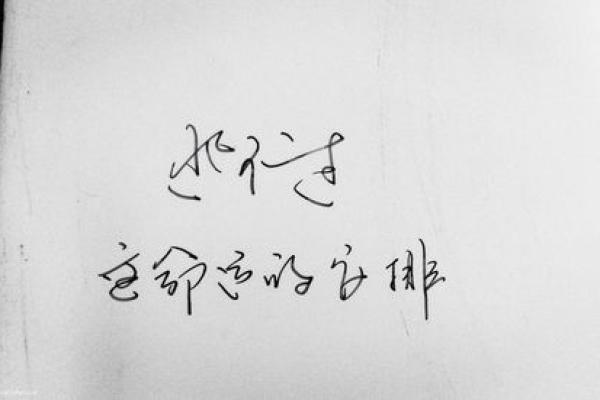 逃不过
这命运的安排